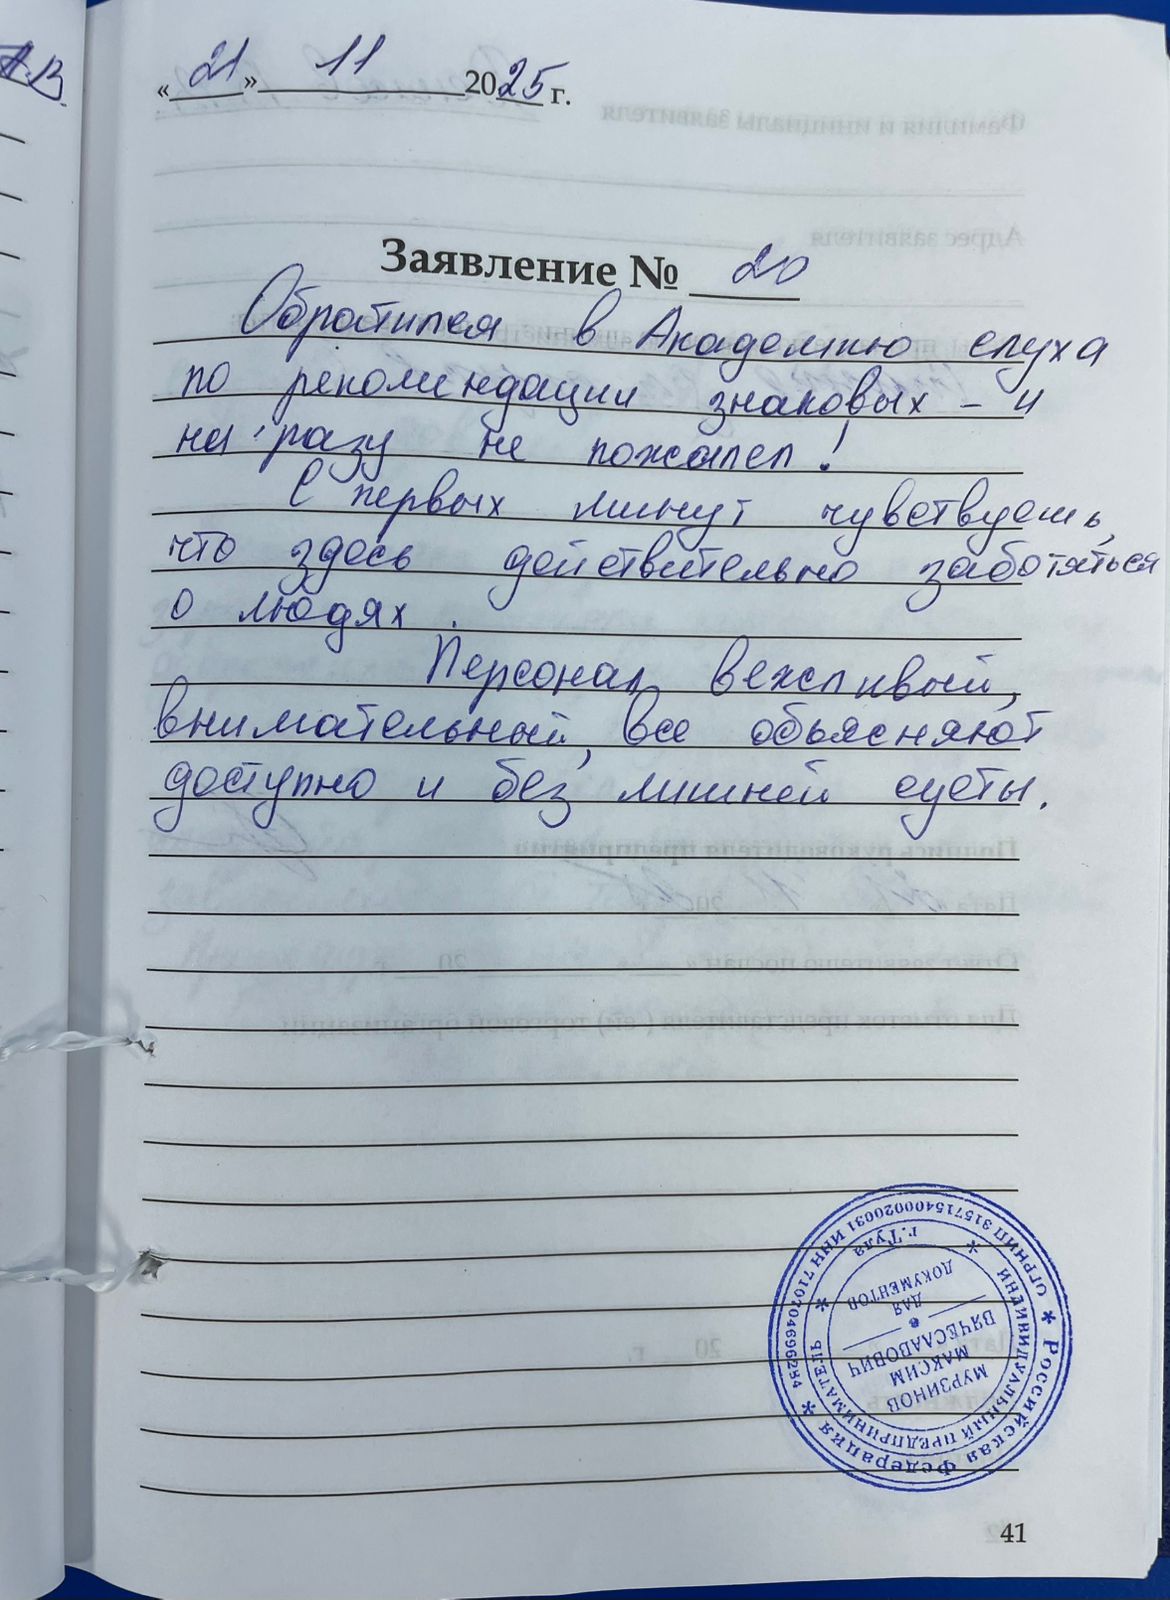 «21» 11 2025 г.
Заявление № 20
Обратился в Академию слуха
по рекомендации знакомых - и
ни разу не пожалел!
С первых минут чувствуешь,
что здесь действительно заботяться
о людях.
Персонал вежливый,
внимательный, все объясняют
доступно и без лишней суеты.
* Российская Федерация * ИНН 710704696284 ОГРНИП 315715400020031
ИНДИВИДУАЛЬНЫЙ ПРЕДПРИНИМАТЕЛЬ * г.Тула *
МУРЗИНОВ
МАКСИМ
ВЯЧЕСЛАВОВИЧ
ДЛЯ
ДОКУМЕНТОВ
41